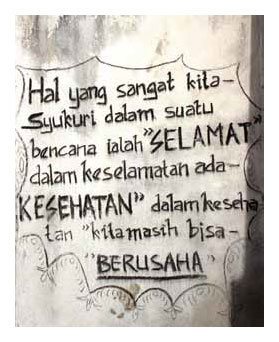 Hal yang sangat kita-
Syukuri dalam suatu
bencana ialah "SELAMAT"
dalam keselamatan ada-
KESEHATAN" dalam keseha
tan "kita masih bisa-
"BERUSAHA"